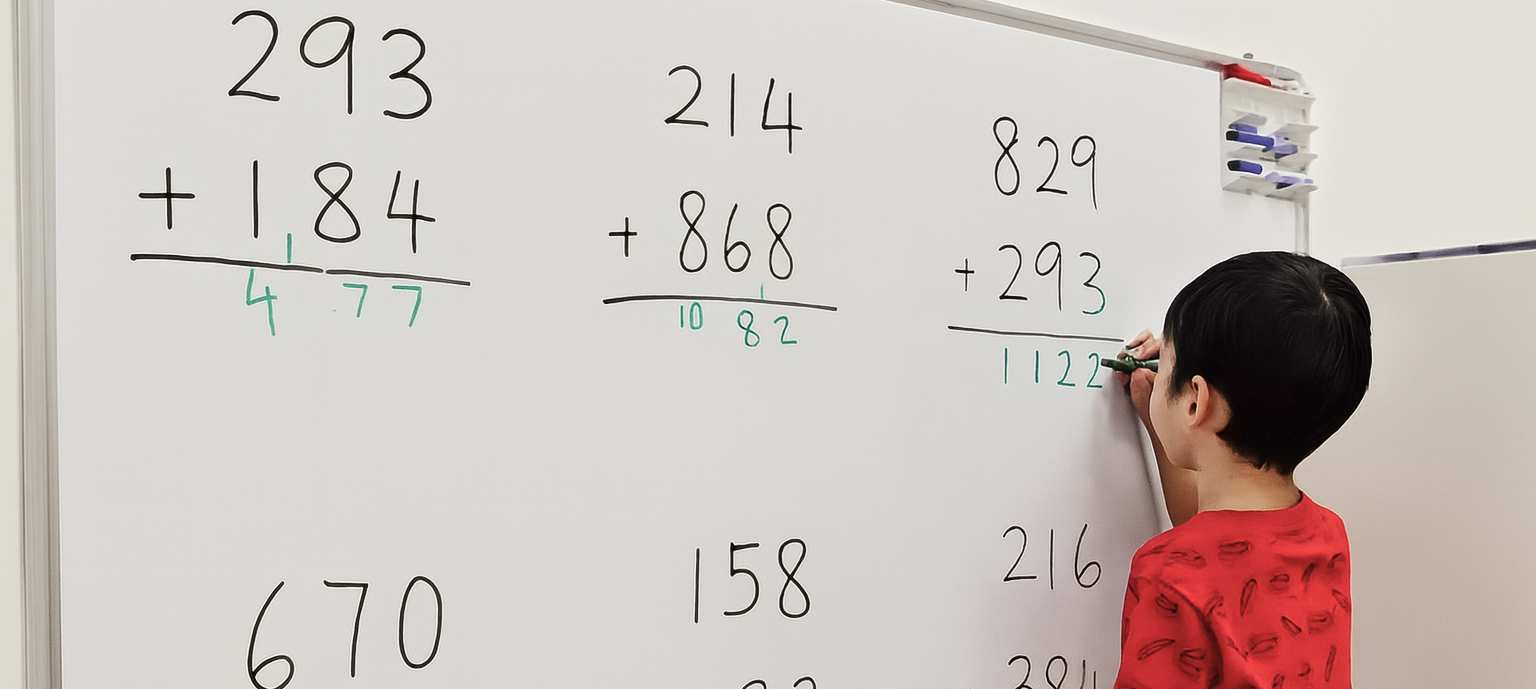 293
+ 184
1
4 77
214
+ 868
1
10 82
829
+ 293
1122
670
158
216